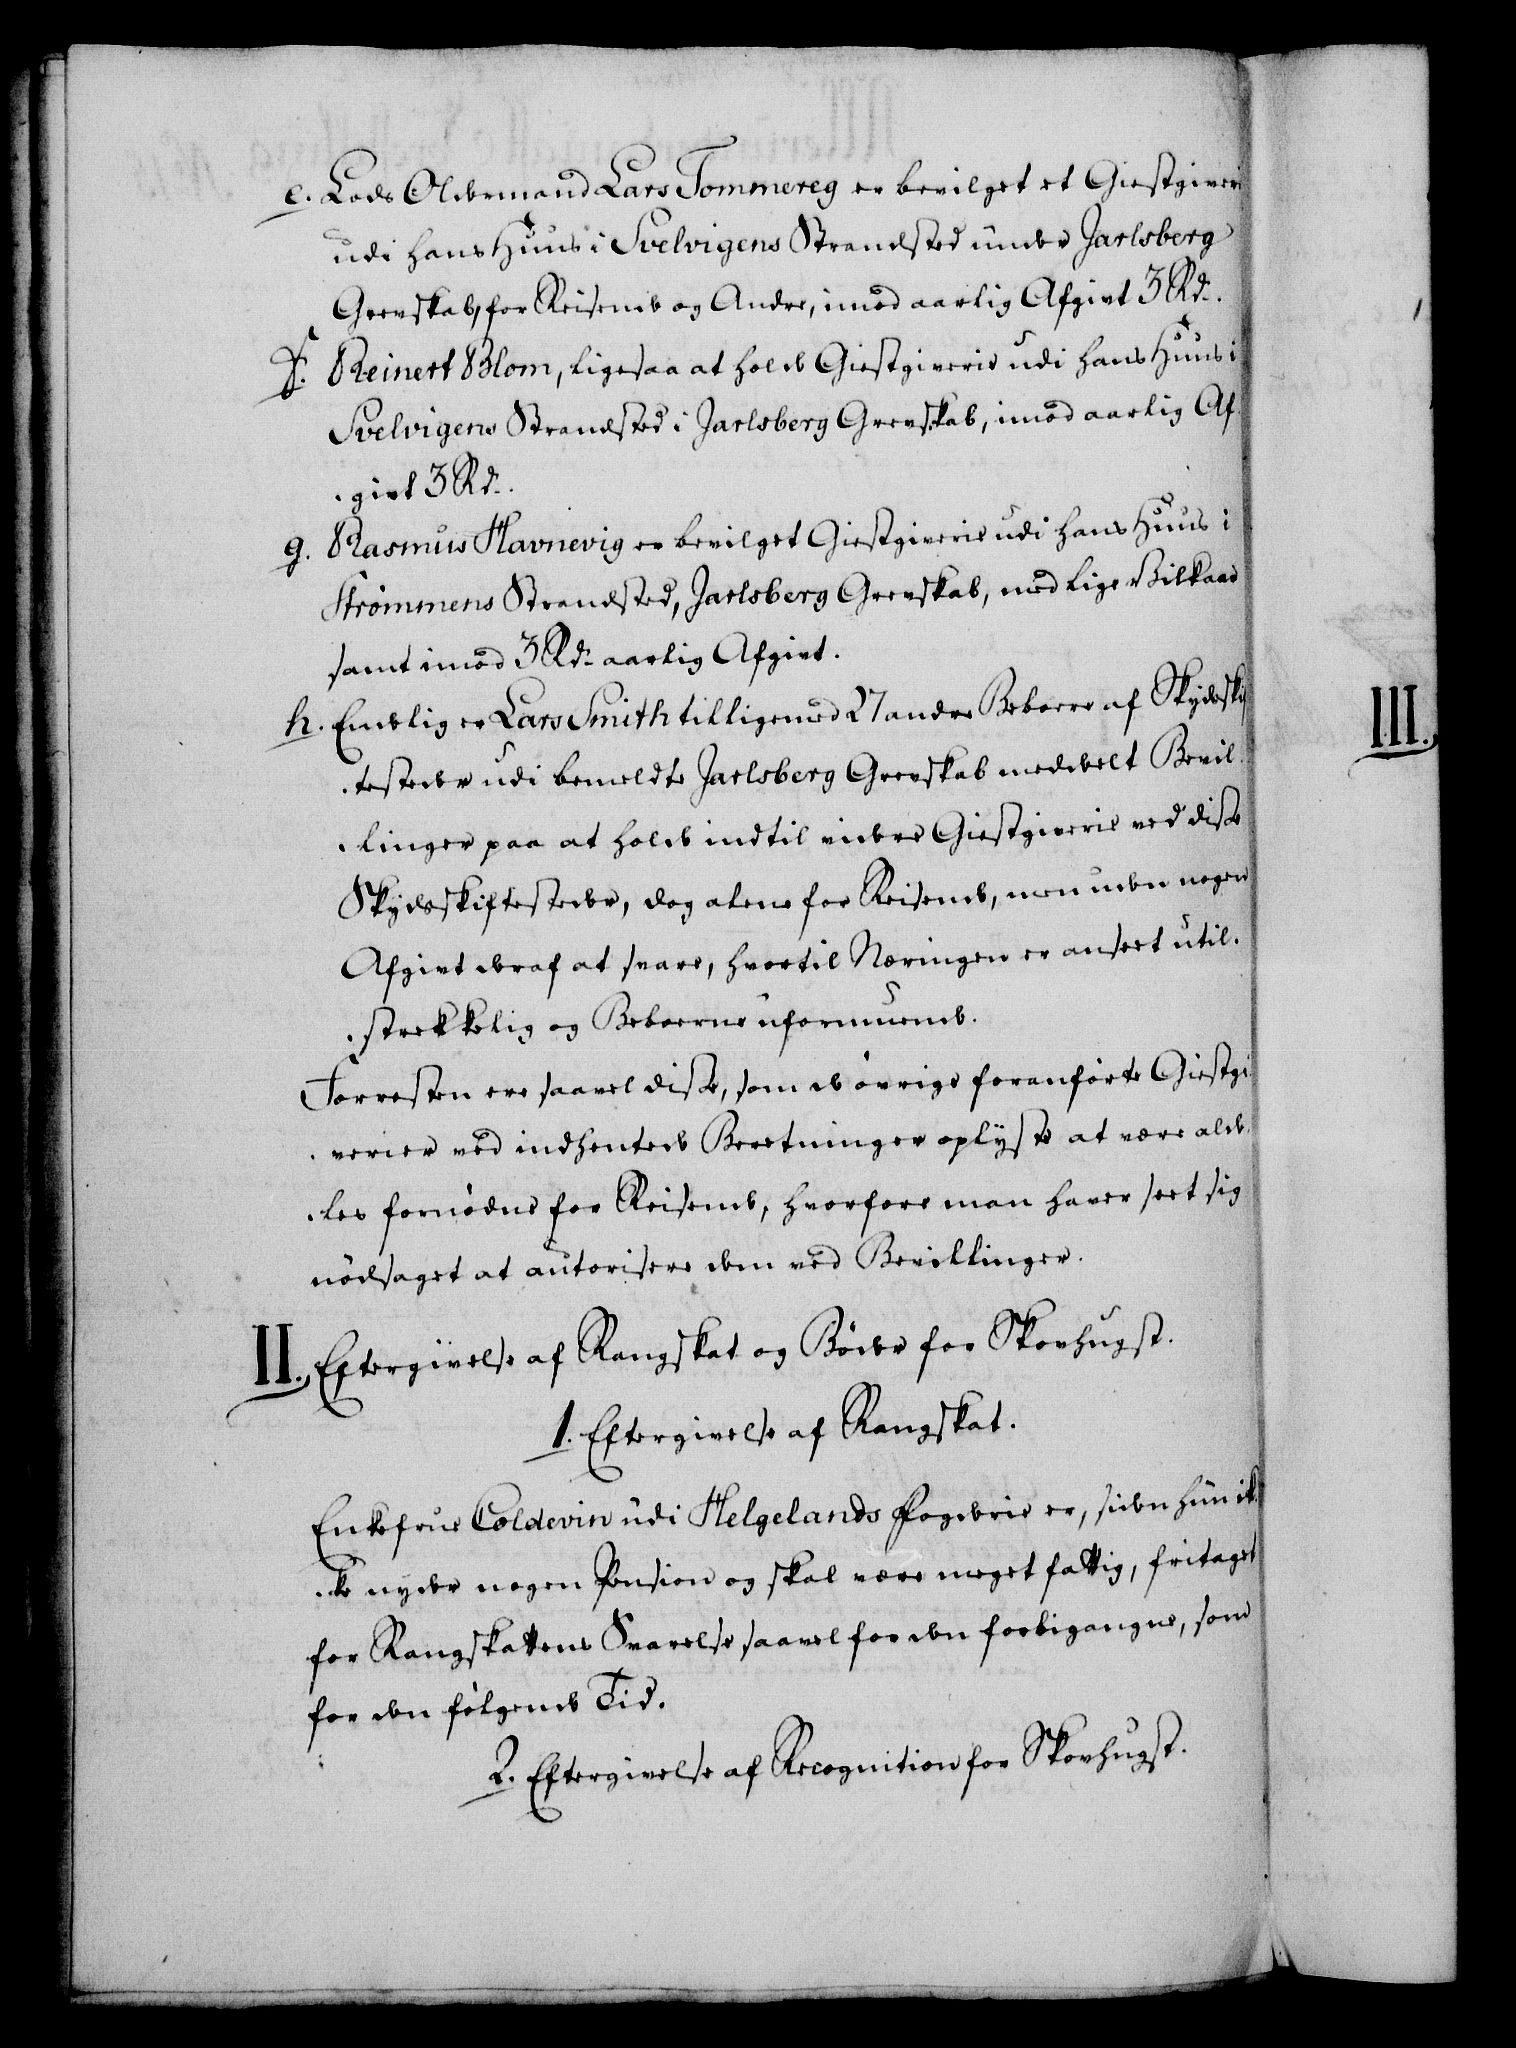 e. Lods Oldermand Lars Tommereg er bevilget et Giestgiveri
udi hans Huus i Svelvigens Strandsted under Jarlsberg
Grevskab, for Reisende og Andre, imod aarlig Afgivt 3 Rd.
f. Reinert Blom, ligesaa at holde Giestgiverie udi hans Huus i
Svelvigens Strandsted i Jarlsberg Grevskab, imod aarlig Af-
givt 3 Rd.
g. Rasmus Havnevig er bevilget Giestgiverie udi hans Huus i
Strømmens Strandsted, Jarlsberg Grevskab, med lige Vilkaar
samt imod 3 Rd. aarlig Afgivt.
h. Endelig er Lars Smith tilligemed 27 andre Beboere af Skydsskif-
testeder udi bemeldte Jarlsberg Grevskab meddelt Bevil-
linger paa at holde indtil videre Giestgiverie ved disse
Skydsskiftesteder, dog alene for Reisende, men uden nogen
Afgivt deraf at svare, hvortil Næringen er anseet util-
strekkelig og Beboerne uformuende.
Forresten ere saavel disse, som de øvrige foranførte Giestgi-
verier ved indhentede Beretninger oplyste at være alde-
les fornødne for Reisende, hvorfore man haver seet sig
nødsaget at autorisere dem ved Bevillinger.
II. Eftergivelse af Rangskat og Bøder for Skovhugst.
1. Eftergivelse af Rangskat.
Enkefrue Coldevin udi Helgelands Fogderie er, siden hun ik-
ke nyder nogen Pension og skal være meget fattig, fritaget
for Rangskattens Svarelse saavel for den forbigangne, som
for den følgende Tid.
2. Eftergivelse af Recognition for Skovhugst.
III.